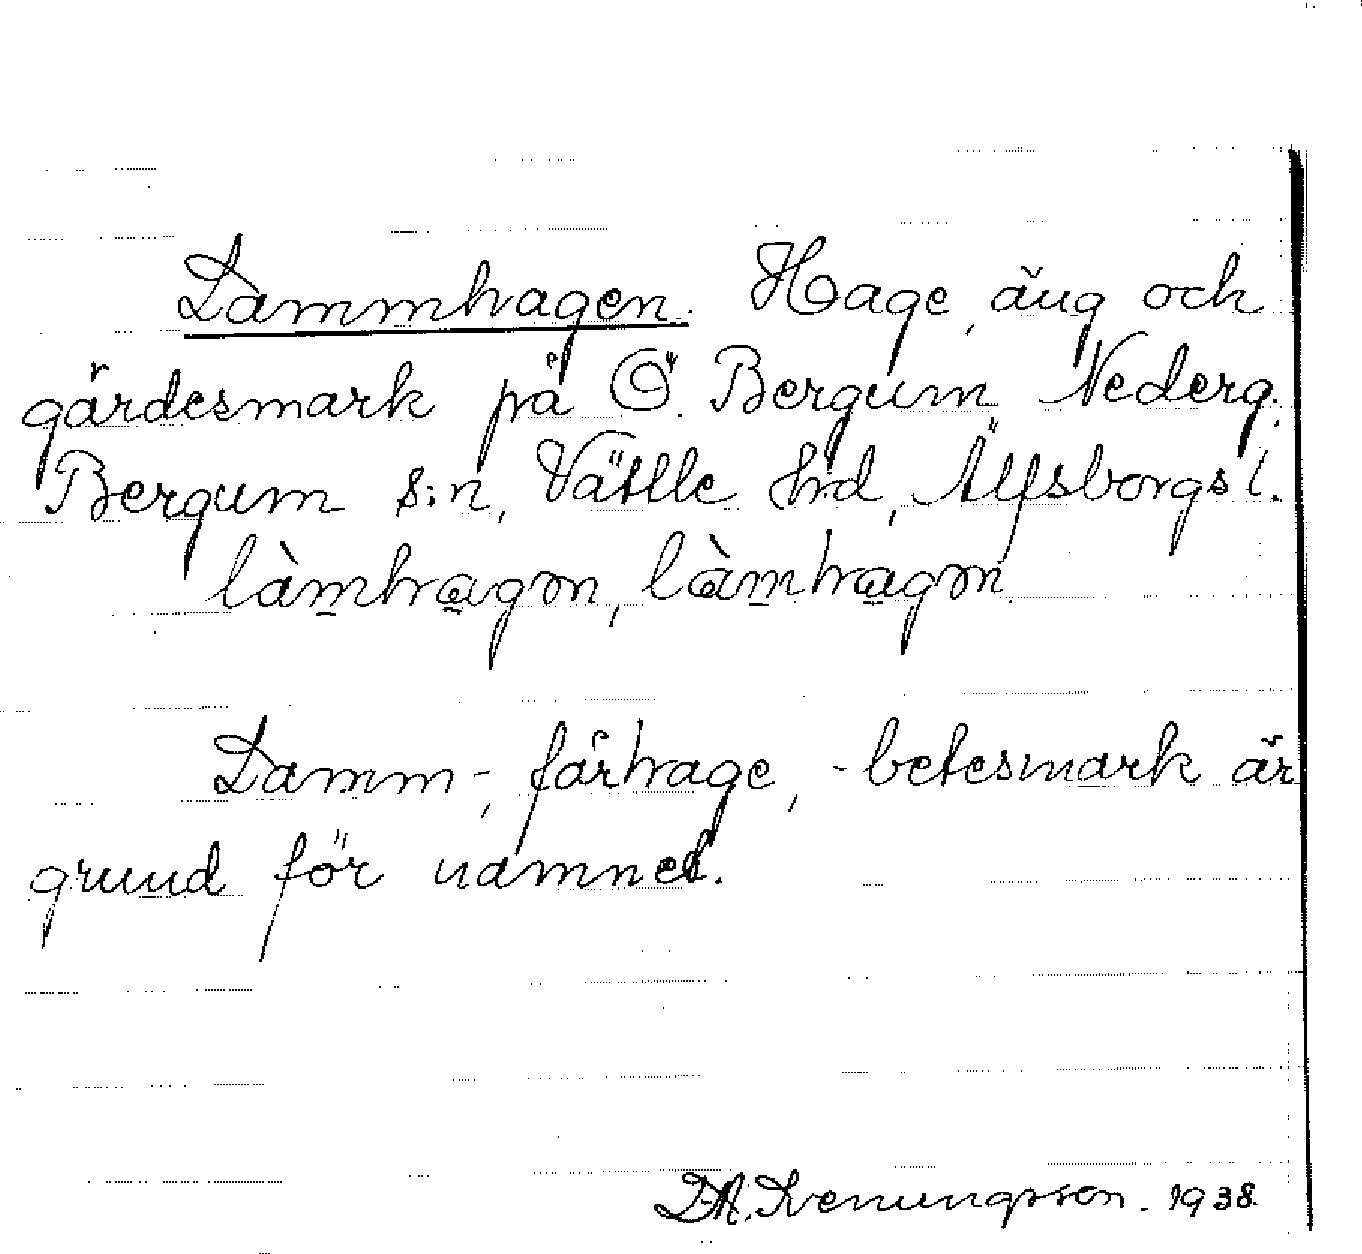 Lammhagen. Hage, äng och
gärdesmark på Ö. Bergum Nederg.
Bergum s:n, Vättle hrd, Älfsborgs l.
làmhagən, làmhagən
Lamm-, fårhage, -betesmark är
grund för namnet.
D.A. Svenungsson. 1938.